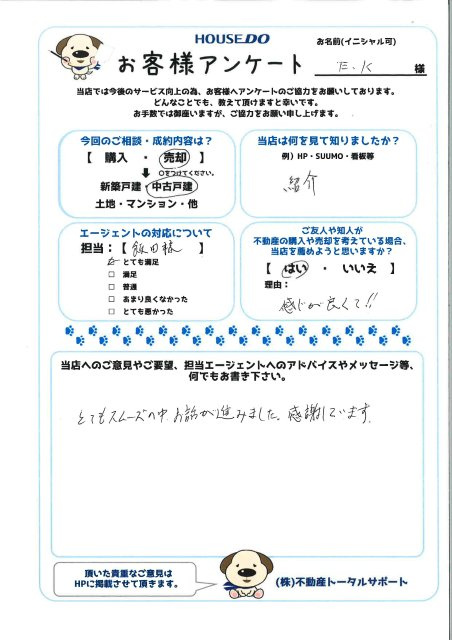 HOUSE DO
お客様アンケート
お名前(イニシャル可)
E.K 様
当店では今後のサービス向上の為、お客様へアンケートのご協力をお願いしております。
どんなことでも、教えて頂けますと幸いです。
お手数では御座いますが、ご協力をお願い申し上げます。
今回のご相談・成約内容は?
【 購入 ・ 売却 】
〇をつけてください。
新築戸建・中古戸建
土地・マンション・他
当店は何を見て知りましたか?
例)HP・SUUMO・看板等
紹介
エージェントの対応について
担当:【 飯田様 】
とても満足
□ 満足
□ 普通
□ あまり良くなかった
□ とても悪かった
ご友人や知人が
不動産の購入や売却を考えている場合、
当店を薦めようと思いますか?
【 はい ・ いいえ 】
理由:
感じが良くて!!
当店へのご意見やご要望、担当エージェントへのアドバイスやメッセージ等、
何でもお書き下さい。
とてもスムーズの中お話が進みました。感謝しています。
頂いた貴重なご意見は
HPに掲載させて頂きます。
(株)不動産トータルサポート